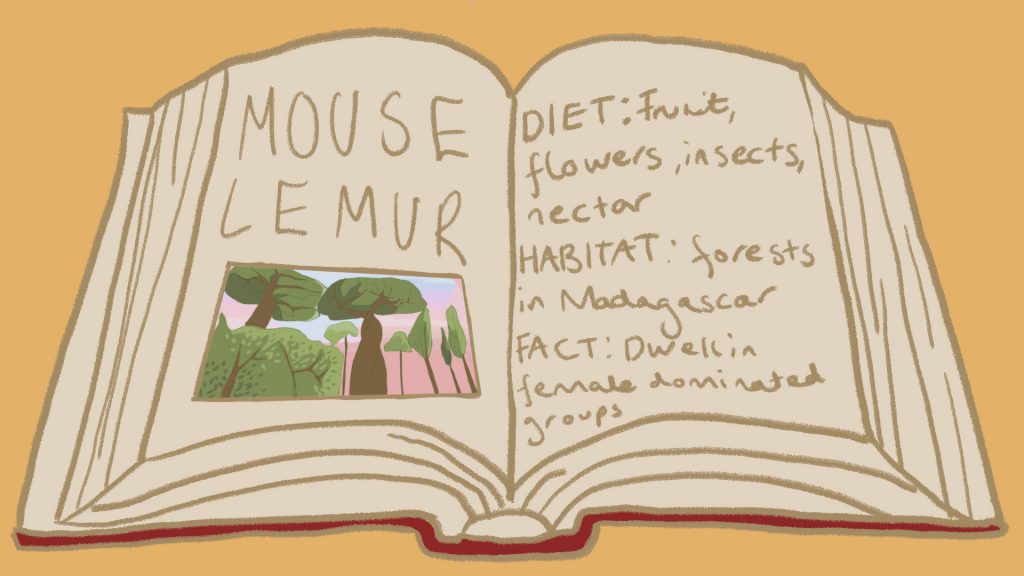 MOUSE
LEMUR
DIET: Fruit,
flowers, insects,
nectar
HABITAT: forests
in Madagascar
FACT: Dwell in
female dominated
groups